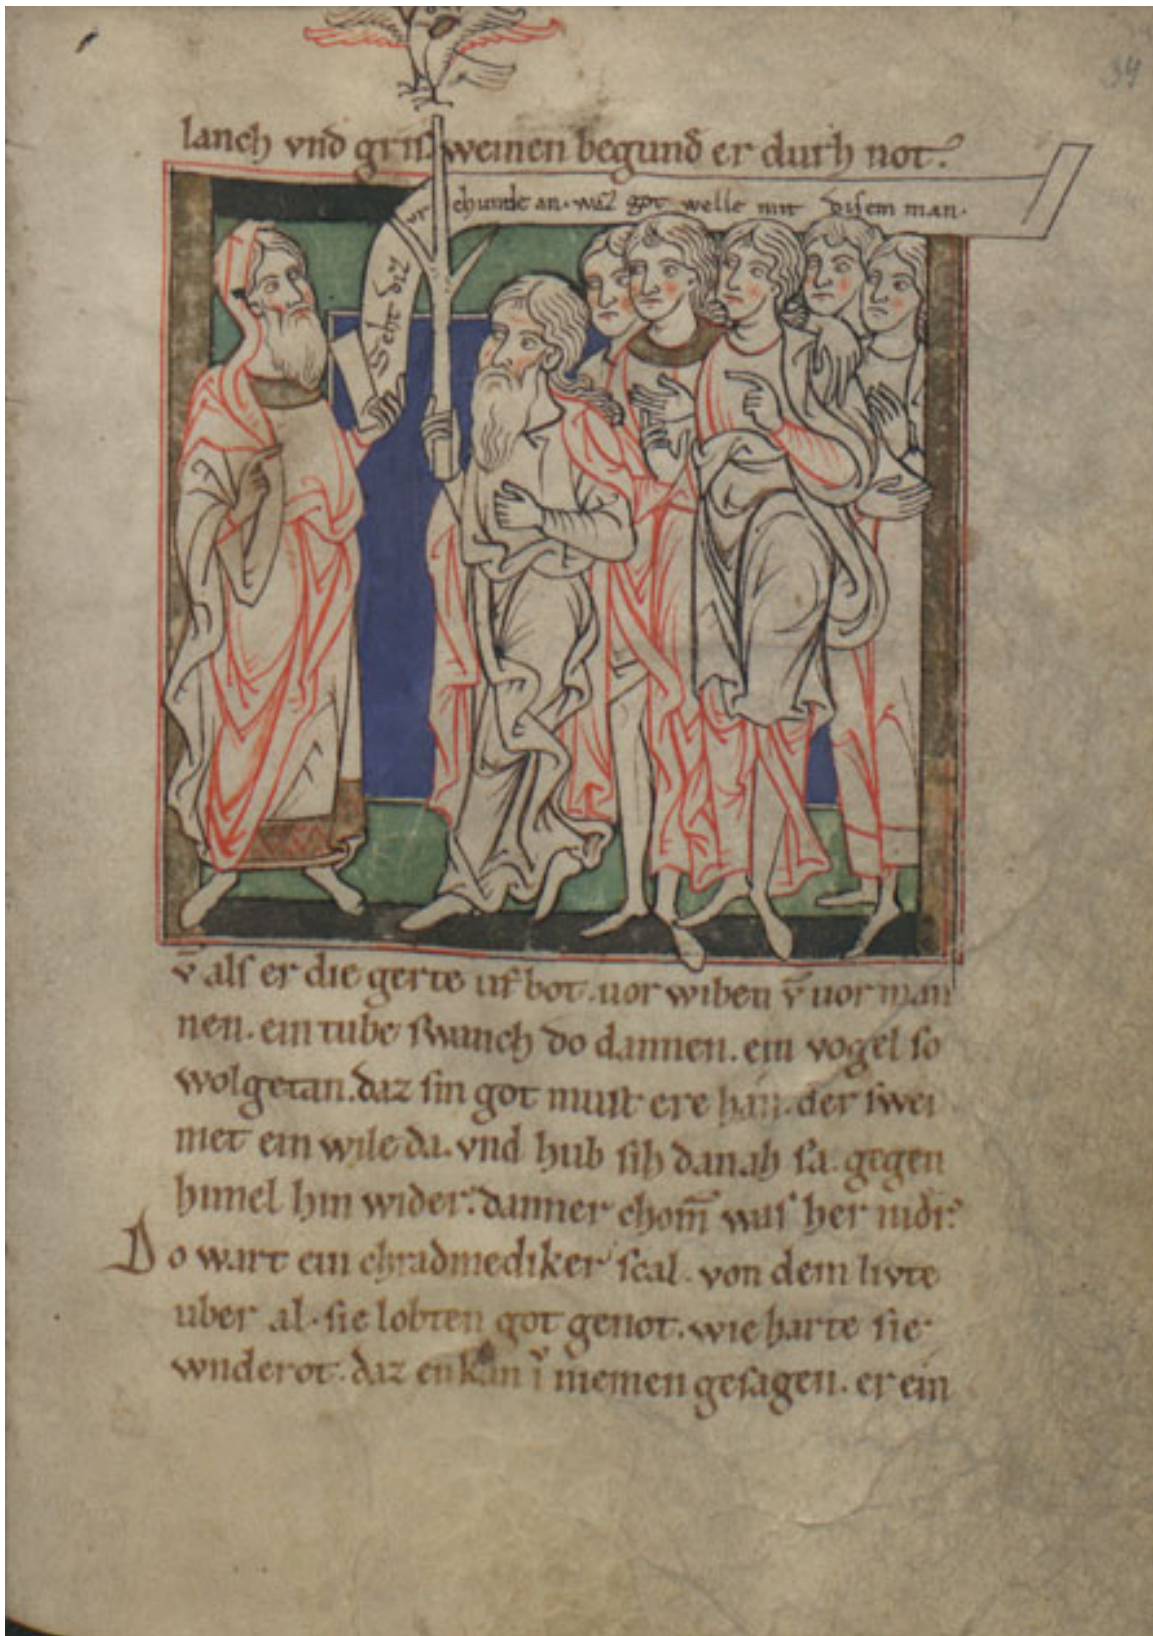 34
lanch vnd gris. weinen begund er durh not.
Seht diz ur chunde an. waz got welle mit disem man.
v̄ als er die gerte uf bot. uor wiben v̄ uor man
nen. ein tube swanch do dannen. ein vogel so
wolgetan. daz sin got must ere han. der swei
met ein wile da. vnd hub sih danah sa. gegen
himel hin wider. danner chom̄ was her nidr.
Do wart ein chradmediker scal. von dem livte
uber al. sie lobten got genot. wie harte sie
wnderot. daz enkan v̄ niemen gesagen. er ein